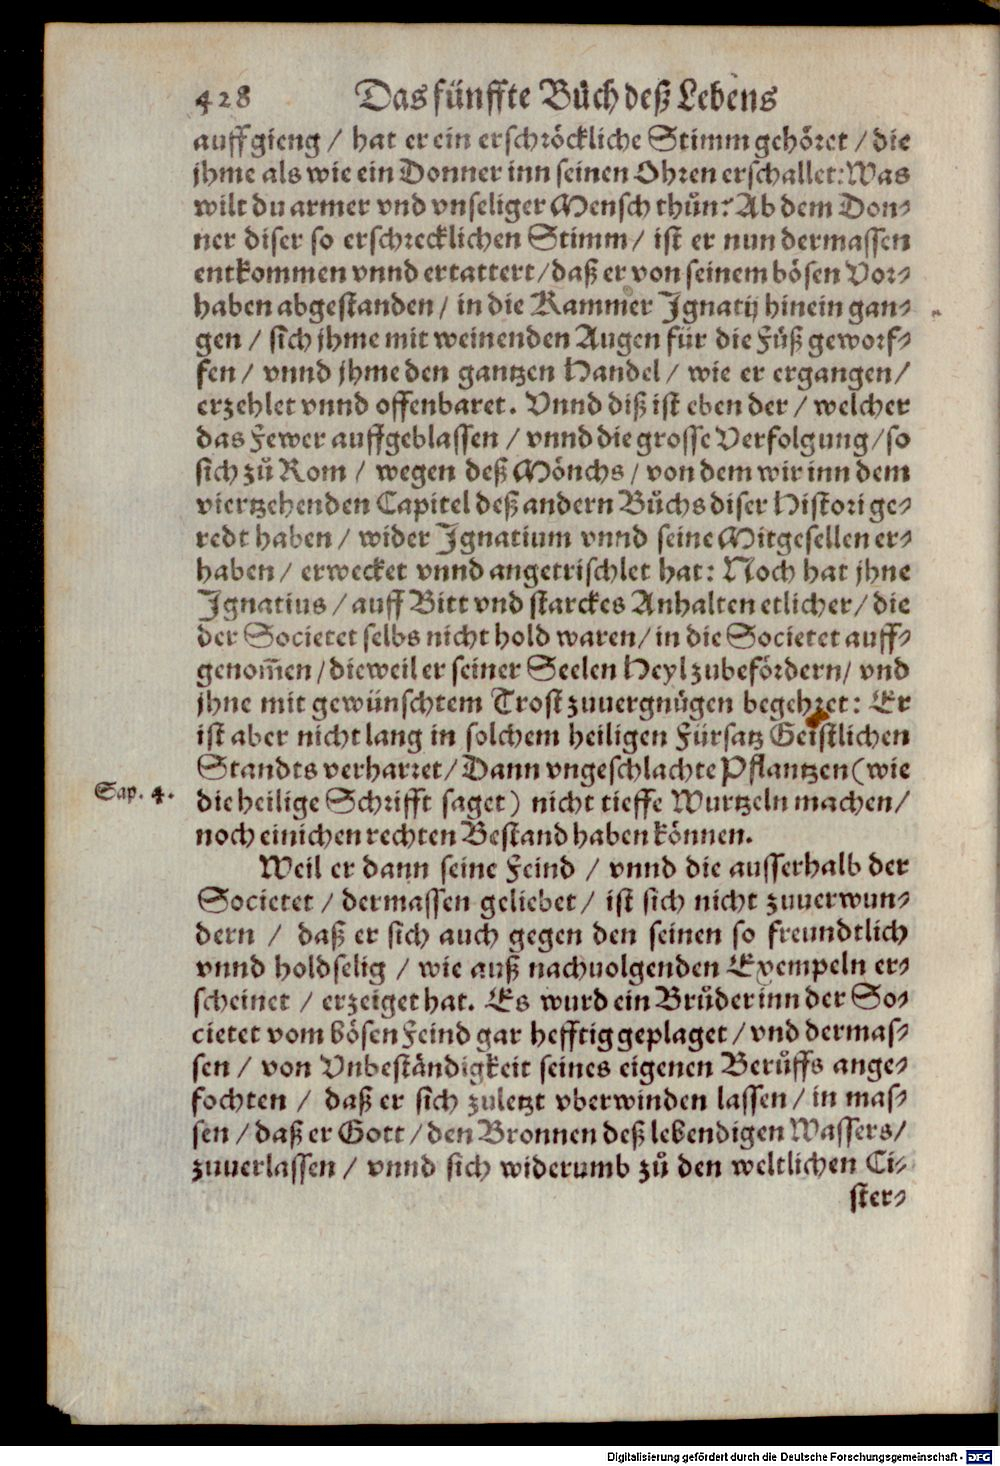 428 Das fünffte Bůch deß Lebens
auffgieng / hat er ein erschröckliche Stimm gehöret / die
jhme als wie ein Donner inn seinen Ohren erschallet: Was
wilt du armer vnd vnseliger Mensch thůn? Ab dem Don⸗
ner diser so erschrecklichen Stimm / ist er nun dermassen
entkommen vnnd ertattert / daß er von seinem bösen Vor⸗
haben abgestanden / in die Kammer Ignatij hinein gan⸗
gen / sich jhme mit weinenden Augen für die Füß geworf⸗
fen / vnnd jhme den gantzen Handel / wie er ergangen /
erzehlet vnnd offenbaret. Vnnd diß ist eben der / welcher
das Fewer auffgeblassen / vnnd die grosse Verfolgung / so
sich zů Rom / wegen deß Mönchs / von dem wir inn dem
viertzehenden Capitel deß andern Bůchs diser Histori ge⸗
redt haben / wider Ignatium vnnd seine Mitgesellen er⸗
haben / erwecket vnnd angetrischlet hat: Noch hat jhne
Ignatius / auff Bitt vnd starckes Anhalten etlicher / die
der Societet selbs nicht hold waren / in die Societet auff⸗
genom̃en / dieweil er seiner Seelen Heyl zubefördern / vnd
jhne mit gewünschtem Trost zuuergnügen begehret: Er
ist aber nicht lang in solchem heiligen Fürsatz Geistlichen
Standts verharret / Dann vngeschlachte Pflantzen (wie
Sap. 4. die heilige Schrifft saget) nicht tieffe Wurtzeln machen /
noch einichen rechten Bestand haben können.
Weil er dann seine Feind / vnnd die ausserhalb der
Societet / dermassen geliebet / ist sich nicht zuuerwun⸗
dern / daß er sich auch gegen den seinen so freundtlich
vnnd holdselig / wie auß nachuolgenden Exempeln er⸗
scheinet / erzeiget hat. Es wurd ein Brůder inn der So⸗
cietet vom bösen Feind gar hefftig geplaget / vnd dermas⸗
sen / von Vnbeständigkeit seines eigenen Berůffs ange⸗
fochten / daß er sich zuletzt vberwinden lassen / in mas⸗
sen / daß er Gott / den Bronnen deß lebendigen Wassers /
zuuerlassen / vnnd sich widerumb zů den weltlichen Ci⸗
ster⸗
Digitalisierung gefördert durch die Deutsche Forschungsgemeinschaft - DFG